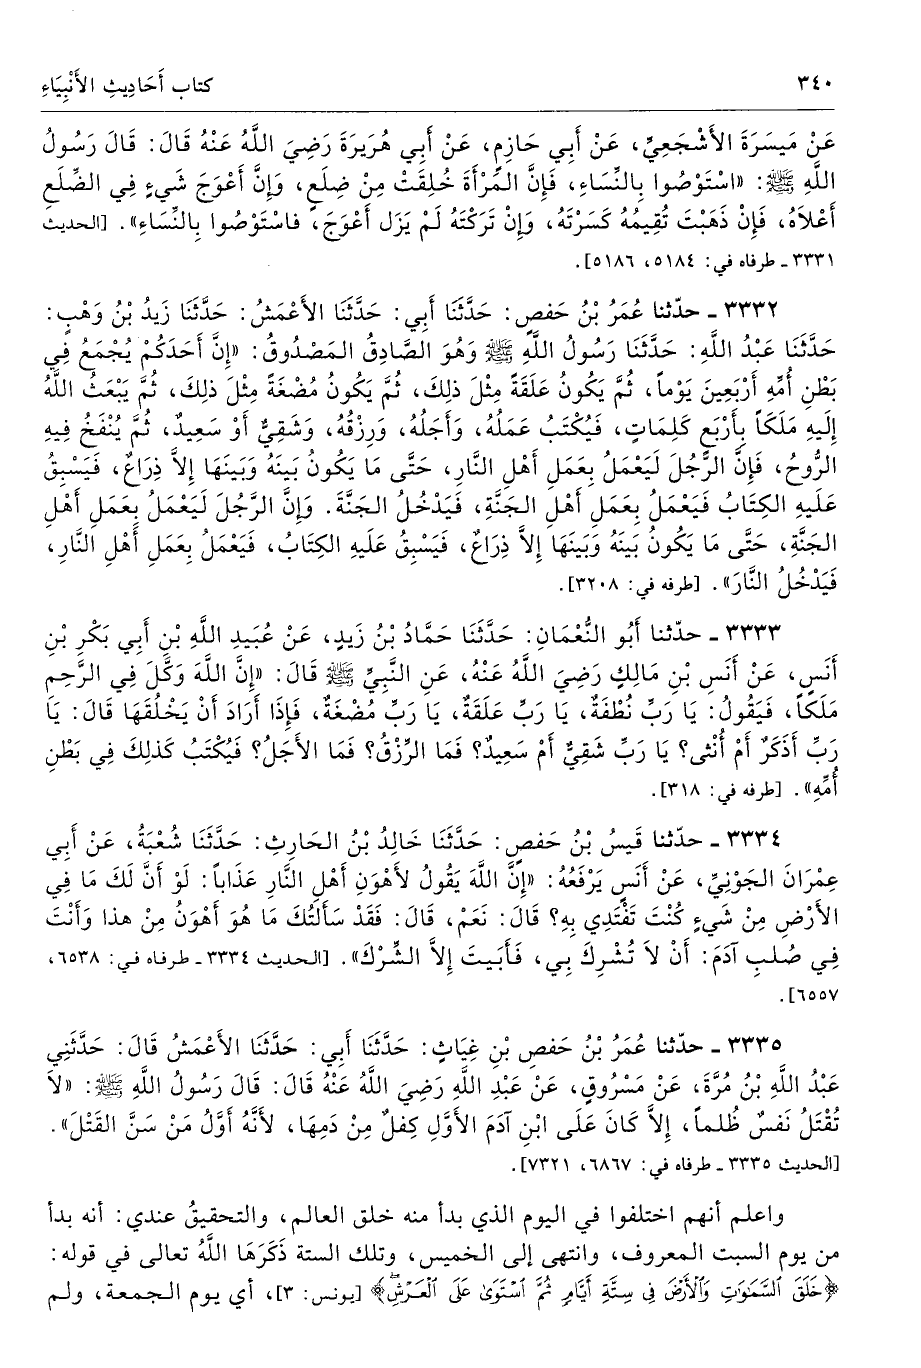 ٣٤٠ كتاب أَحَادِيثِ الأَنْبِيَاءِ
عَنْ مَيسَرَةَ الأَشْجَعِيِّ، عَنْ أَبِي حَازِمٍ، عَنْ أَبِي هُرَيرَةَ رَضِيَ اللَّهُ عَنْهُ قَالَ: قَالَ رَسُولُ
اللَّهِ ﷺ: «اسْتَوْصُوا بِالنِّسَاءِ، فَإِنَّ المَرْأَةَ خُلِقَتْ مِنْ ضِلَعٍ، وَإِنَّ أَعْوَجَ شَيءٍ فِي الضِّلَعِ
أَعْلاَهُ، فَإِنْ ذَهَبْتَ تُقِيمُهُ كَسَرْتَهُ، وَإِنْ تَرَكْتَهُ لَمْ يَزَل أَعْوَجَ، فاسْتَوْصُوا بِالنِّسَاءِ». [الحديث
٣٣٣١ ـ طرفاه في: ٥١٨٤، ٥١٨٦].
٣٣٣٢ ـ حدّثنا عُمَرُ بْنُ حَفصٍ: حَدَّثَنَا أَبِي: حَدَّثَنَا الأَعْمَشُ: حَدَّثَنَا زَيدُ بْنُ وَهْبٍ:
حَدَّثَنَا عَبْدُ اللَّهِ: حَدَّثَنَا رَسُولُ اللَّهِ ﷺ وَهُوَ الصَّادِقُ المَصْدُوقُ: «إِنَّ أَحَدَكُمْ يُجْمَعُ فِي
بَطْنِ أُمِّهِ أَرْبَعِينَ يَوْماً، ثُمَّ يَكُونُ عَلَقَةً مِثْلَ ذلِكَ، ثُمَّ يَكُونُ مُضْغَةً مِثْلَ ذلِكَ، ثُمَّ يَبْعَثُ اللَّهُ
إِلَيهِ مَلَكاً بِأَرْبَعِ كَلِمَاتٍ، فَيُكْتَبُ عَمَلُهُ، وَأَجَلُهُ، وَرِزْقُهُ، وَشَقِيٌّ أَوْ سَعِيدٌ، ثُمَّ يُنْفَخُ فِيهِ
الرُّوحُ، فَإِنَّ الرَّجُلَ لَيَعْمَلُ بِعَمَلِ أَهْلِ النَّارِ، حَتَّى مَا يَكُونُ بَينَهُ وَبَينَهَا إِلاَّ ذِرَاعٌ، فَيَسْبِقُ
عَلَيهِ الكِتَابُ فَيَعْمَلُ بِعَمَلِ أَهْلِ الجَنَّةِ، فَيَدْخُلُ الجَنَّةَ. وَإِنَّ الرَّجُلَ لَيَعْمَلُ بِعَمَلِ أَهْلِ
الجَنَّةِ، حَتَّى مَا يَكُونُ بَينَهُ وَبَينَهَا إِلاَّ ذِرَاعٌ، فَيَسْبِقُ عَلَيهِ الكِتَابُ، فَيَعْمَلُ بِعَمَلِ أَهْلِ النَّارِ،
فَيَدْخُلُ النَّارَ». [طرفه في: ٣٢٠٨].
٣٣٣٣ ـ حدّثنا أَبُو النُّعْمَانِ: حَدَّثَنَا حَمَّادُ بْنُ زَيدٍ، عَنْ عُبَيدِ اللَّهِ بْنِ أَبِي بَكْرِ بْنِ
أَنَسٍ، عَنْ أَنَسِ بْنِ مَالِكٍ رَضِيَ اللَّهُ عَنْهُ، عَنِ النَّبِيِّ ﷺ قَالَ: «إِنَّ اللَّهَ وَكَّلَ فِي الرَّحِمِ
مَلَكاً، فَيَقُولُ: يَا رَبِّ نُطْفَةٌ، يَا رَبِّ عَلَقَةٌ، يَا رَبِّ مُضْغَةٌ، فَإِذَا أَرَادَ أَنْ يَخْلُقَهَا قَالَ: يَا
رَبِّ أَذَكَرٌ أَمْ أُنْثى؟ يَا رَبِّ شَقِيٌّ أَمْ سَعِيدٌ؟ فَمَا الرِّزْقُ؟ فَمَا الأَجَلُ؟ فَيُكْتَبُ كَذلِكَ فِي بَطْنِ
أُمِّهِ». [طرفه في: ٣١٨].
٣٣٣٤ ـ حدّثنا قَيسُ بْنُ حَفصٍ: حَدَّثَنَا خَالِدُ بْنُ الحَارِثِ: حَدَّثَنَا شُعْبَةُ، عَنْ أَبِي
عِمْرَانَ الجَوْنِيِّ، عَنْ أَنَسٍ يَرْفَعُهُ: «إِنَّ اللَّهَ يَقُولُ لأَهْوَنِ أَهْلِ النَّارِ عَذَاباً: لَوْ أَنَّ لَكَ مَا فِي
الأَرْضِ مِنْ شَيءٍ كُنْتَ تَفْتَدِي بِهِ؟ قَالَ: نَعَمْ، قَالَ: فَقَدْ سَأَلتُكَ مَا هُوَ أَهْوَنُ مِنْ هذا وَأَنْتَ
فِي صُلبِ آدَمَ: أَنْ لاَ تُشْرِكَ بِي، فَأَبَيتَ إِلاَّ الشِّرْكَ». [الحديث ٣٣٣٤ ـ طرفاه في: ٦٥٣٨،
٦٥٥٧].
٣٣٣٥ ـ حدّثنا عُمَرُ بْنُ حَفصِ بْنِ غِيَاثٍ: حَدَّثَنَا أَبِي: حَدَّثَنَا الأَعْمَشُ قَالَ: حَدَّثَنِي
عَبْدُ اللَّهِ بْنُ مُرَّةَ، عَنْ مَسْرُوقٍ، عَنْ عَبْدِ اللَّهِ رَضِيَ اللَّهُ عَنْهُ قَالَ: قَالَ رَسُولُ اللَّهِ ﷺ: «لاَ
تُقْتَلُ نَفسٌ ظُلماً، إِلاَّ كَانَ عَلَى ابْنِ آدَمَ الأَوَّلِ كِفلٌ مِنْ دَمِهَا، لأَنَّهُ أَوَّلُ مَنْ سَنَّ القَتْلَ».
[الحديث ٣٣٣٥ ـ طرفاه في: ٦٨٦٧، ٧٣٢١].
واعلم أنهم اختلفوا في اليوم الذي بدأ منه خلق العالم، والتحقيقُ عندي: أنه بدأ
من يوم السبت المعروف، وانتهى إلى الخميس، وتلك الستة ذَكَرَهَا اللَّهُ تعالى في قوله:
﴿خَلَقَ ٱلسَّمَٰوَٰتِ وَٱلْأَرْضَ فِي سِتَّةِ أَيَّامٍ ثُمَّ ٱسْتَوَىٰ عَلَى ٱلْعَرْشِۖ﴾ [يونس: ٣]، أي يوم الجمعة، ولم